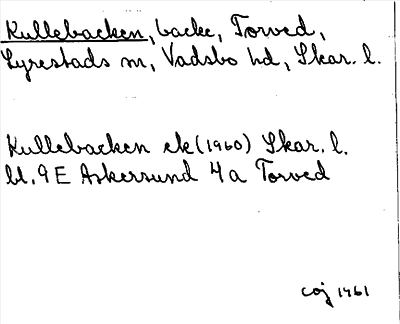 Kullebacken, backe, Torved,
Lyrestads sn, Vadsbo hd, Skar. l.
Kullebacken ek (1960) Skar. l.
bl. 9E Askersund 4a Torved
coj 1961